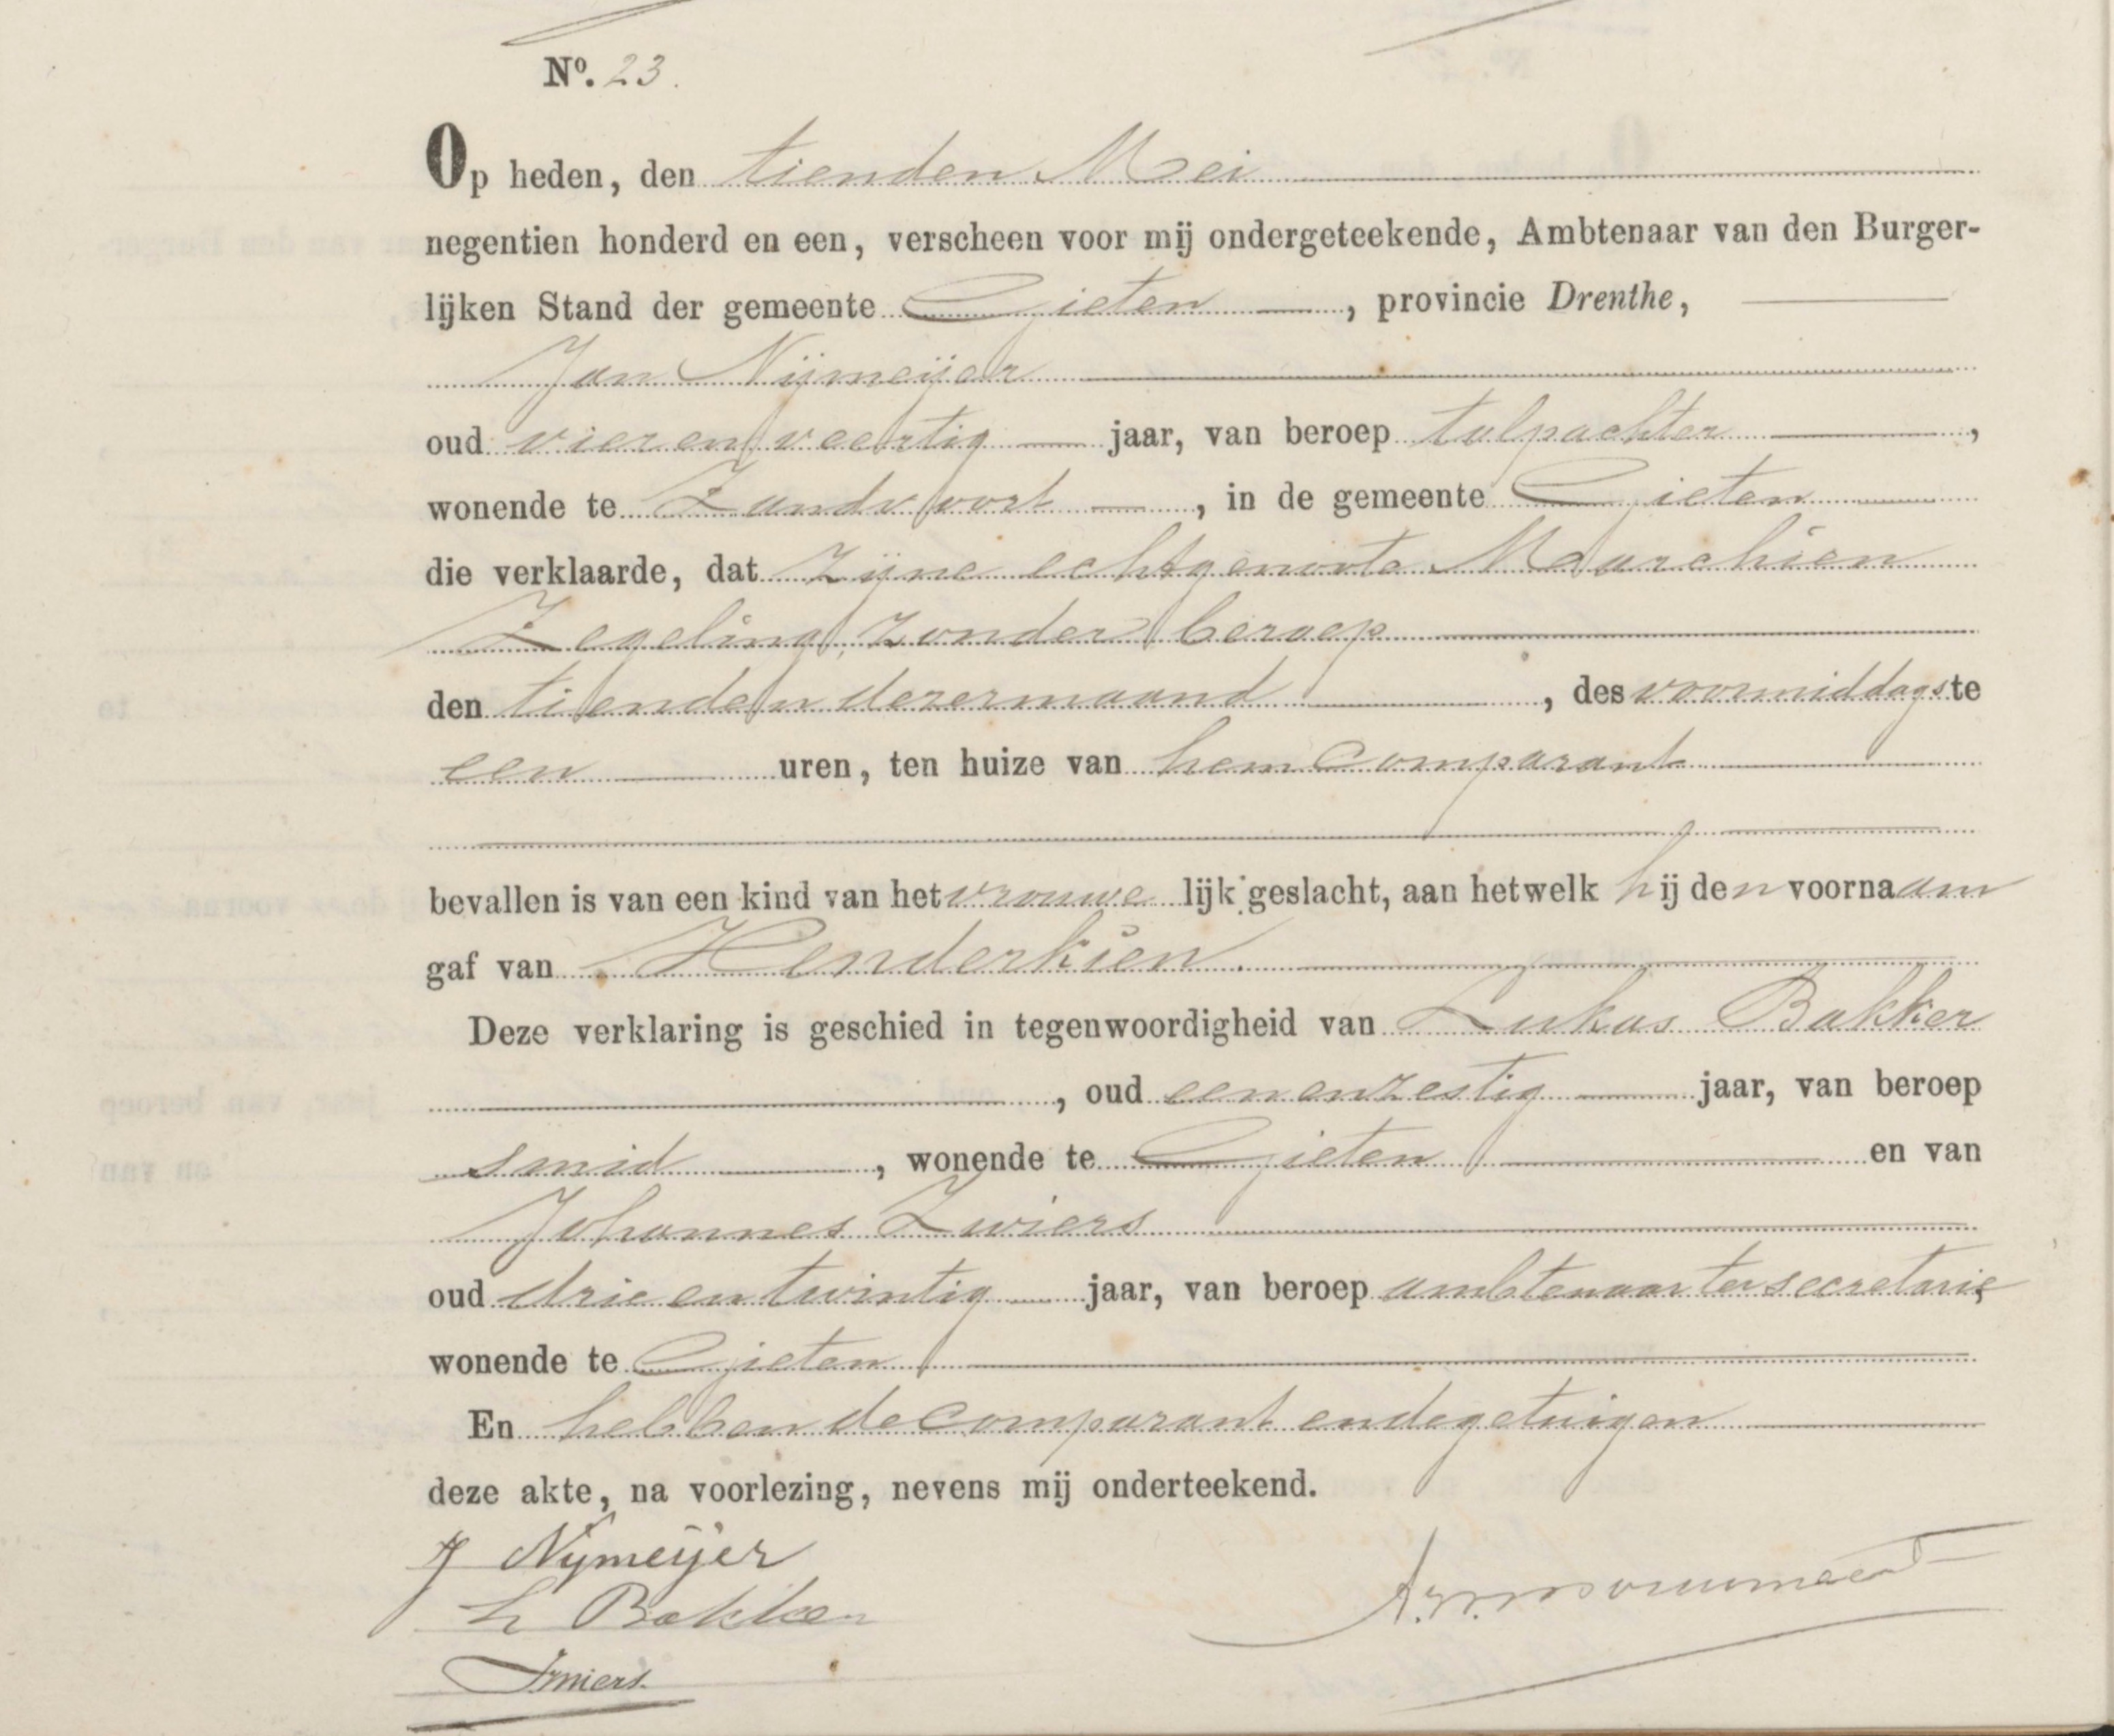 Nº. 23.
Op heden, den tienden Mei
negentien honderd en een, verscheen voor mij ondergeteekende, Ambtenaar van den Burger-
lijken Stand der gemeente Gieten, provincie Drenthe,
Jan Nijmeijer
oud vier en veertig jaar, van beroep tolpachter,
wonende te Zandvoort, in de gemeente Gieten
die verklaarde, dat zijne echtgenoote Maarchien
Zegeling, zonder beroep
den tienden dezer maand, des voormiddags te
een uren, ten huize van hem comparant
bevallen is van een kind van het vrouwelijk geslacht, aan hetwelk hij den voornaam
gaf van Henderkien.
Deze verklaring is geschied in tegenwoordigheid van Lukas Bakker
, oud een en zestig jaar, van beroep
smid, wonende te Gieten en van
Johannes Zwiers
oud drie en twintig jaar, van beroep ambtenaar ter secretarie,
wonende te Gieten
En hebben de comparant en de getuigen
deze akte, na voorlezing, nevens mij onderteekend.
J Nijmeijer
L Bakker
JZwiers.